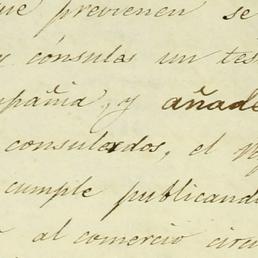 que previenen se
y cónsulas un tes
pañia, y añade
consulados, el
cumple publicand
al comercio circu